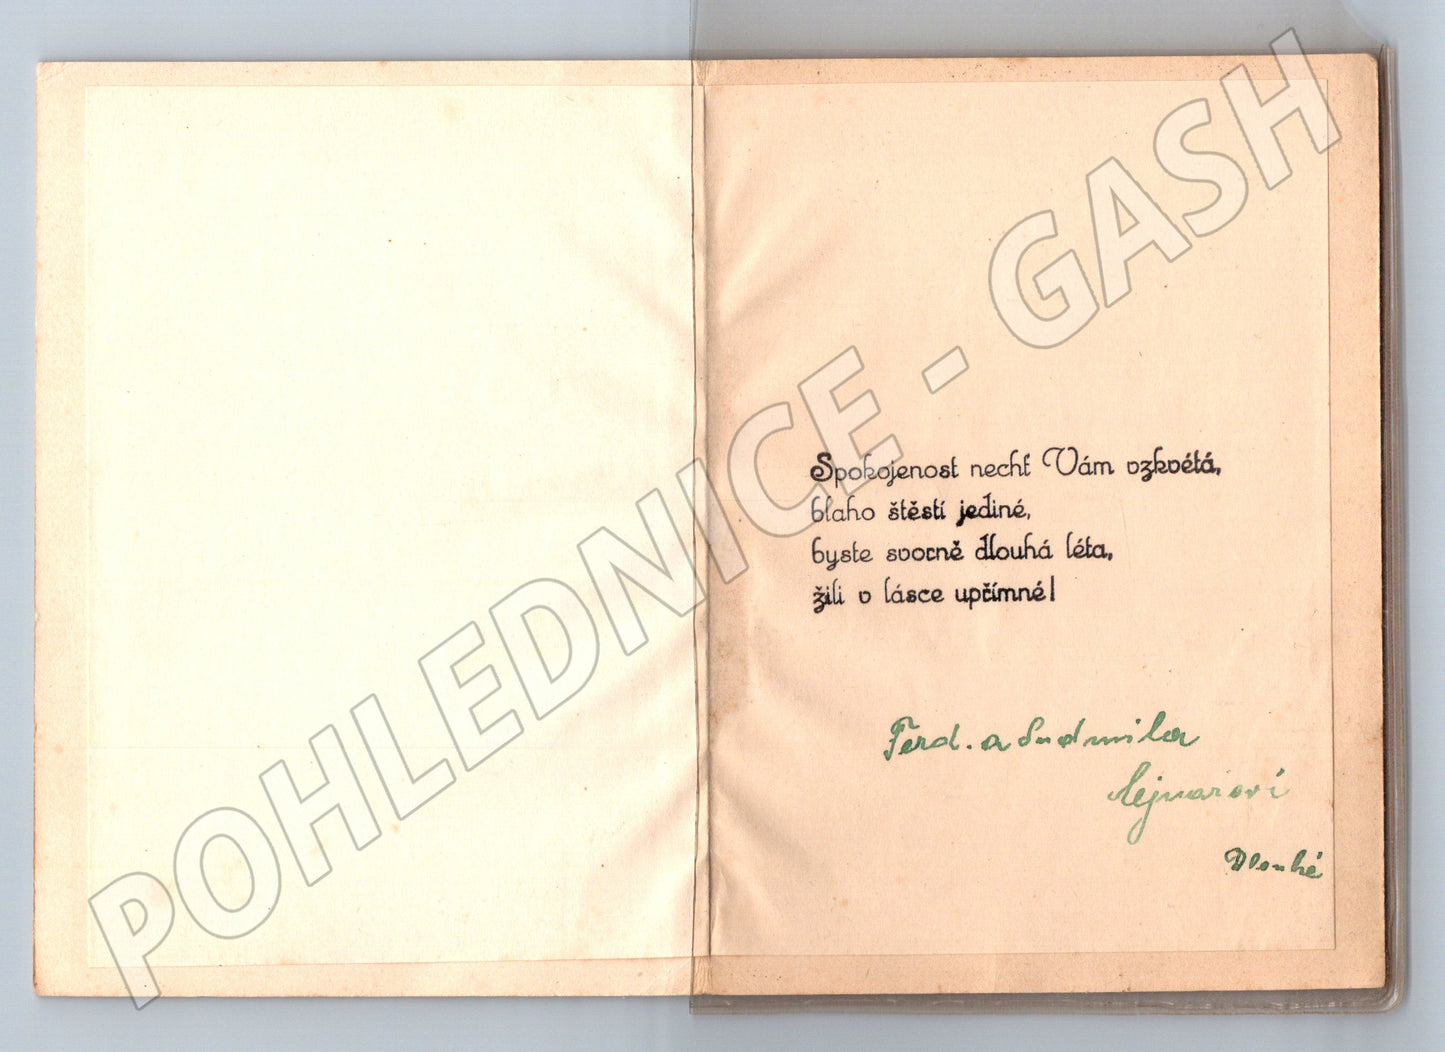 Spokojenost nechť Vám vzkvétá,
blaho štěstí jediné,
byste svorně dlouhá léta,
žili v lásce upřímné!
Ferd. a Ludmila
Lejnarovi
Dlouhé
POHLEDNICE - GASH